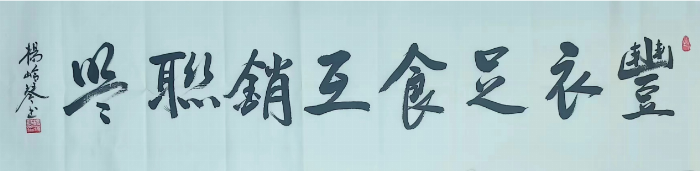 豐衣足食互銷聯盟
楊峰琴书